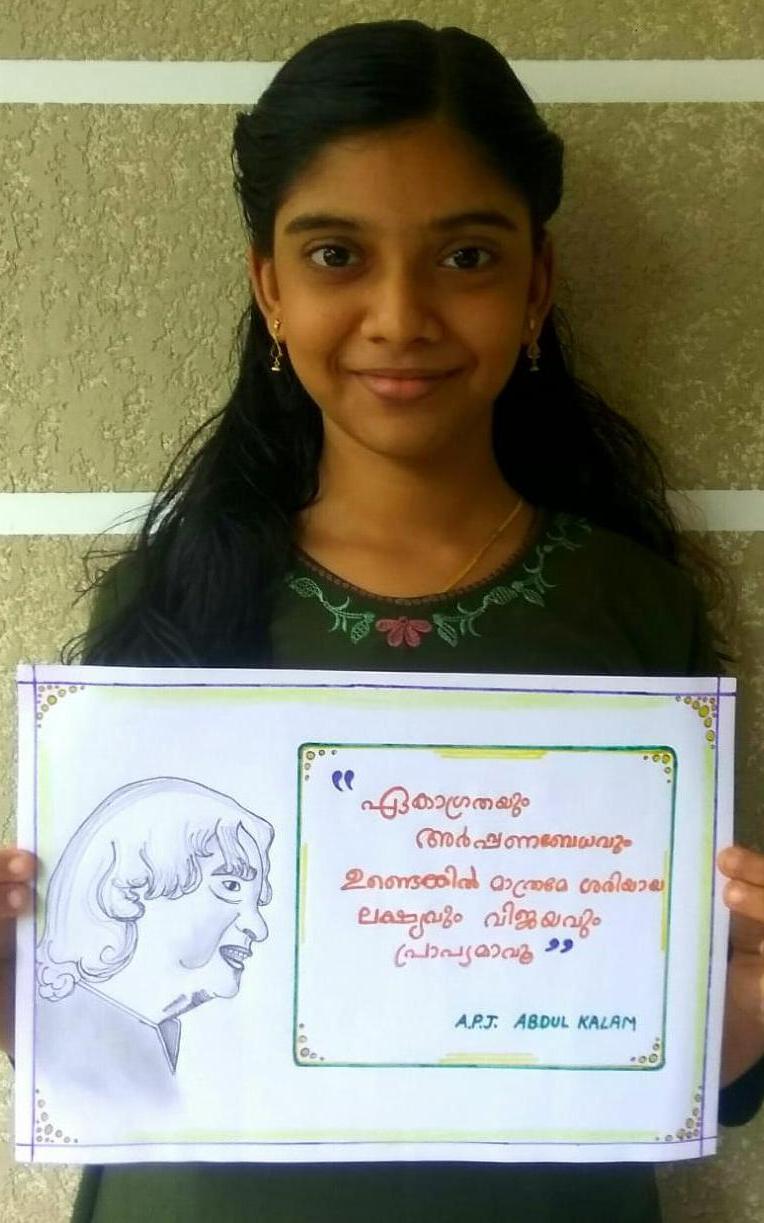 “ ഏകാഗ്രതയും
അർപ്പണബോധവും
ഉണ്ടെങ്കിൽ മാത്രമേ ശരിയായ
ലക്ഷ്യവും വിജയവും
പ്രാപ്യമാവൂ ”
A.P.J. ABDUL KALAM